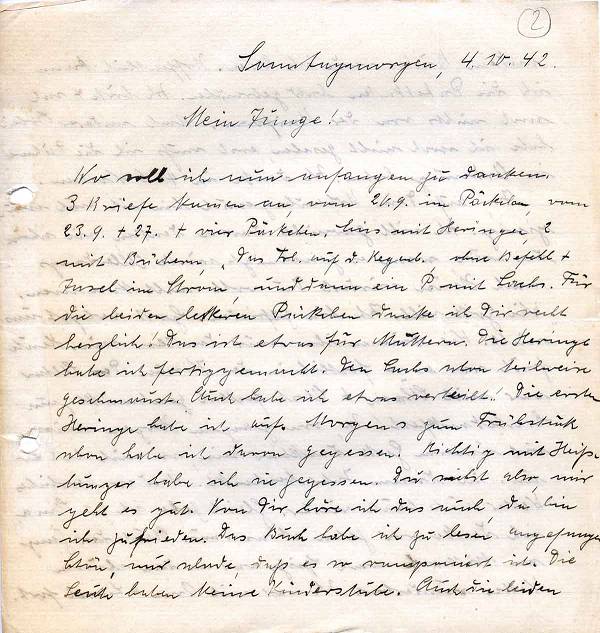 2
Sonntagmorgen, 4.10.42.
Mein Junge!
Wo soll ich nun anfangen zu danken.
3 Briefe kamen an, vom 21.9. im Päckchen, vom
23.9. + 27. + vier Päckchen. Eins mit Heringen, 2
mit Büchern, "Das Frl. auf d. Regenb. ohne Befehl +
Insel im Strom, und dann ein P. mit Lachs. Für
die beiden leckeren Päckchen danke ich Dir recht
herzlich! Das ist etwas für Muttern. Die Heringe
habe ich fertiggemacht. Den Lachs schon teilweise
geschmaust. Auch habe ich etwas verteilt! Die ersten
Heringe habe ich auf. Morgens zum Frühstück
schon habe ich davon gegessen. Richtig mit Heiß-
hunger habe ich sie gegessen. Du siehst also, mir
geht es gut. Von Dir höre ich das auch, da bin
ich zufrieden. Das Buch habe ich zu lesen angefangen
schön, nur schade daß es so ramponiert ist. Die
Leute haben keine Kinderstube. Auch die beiden